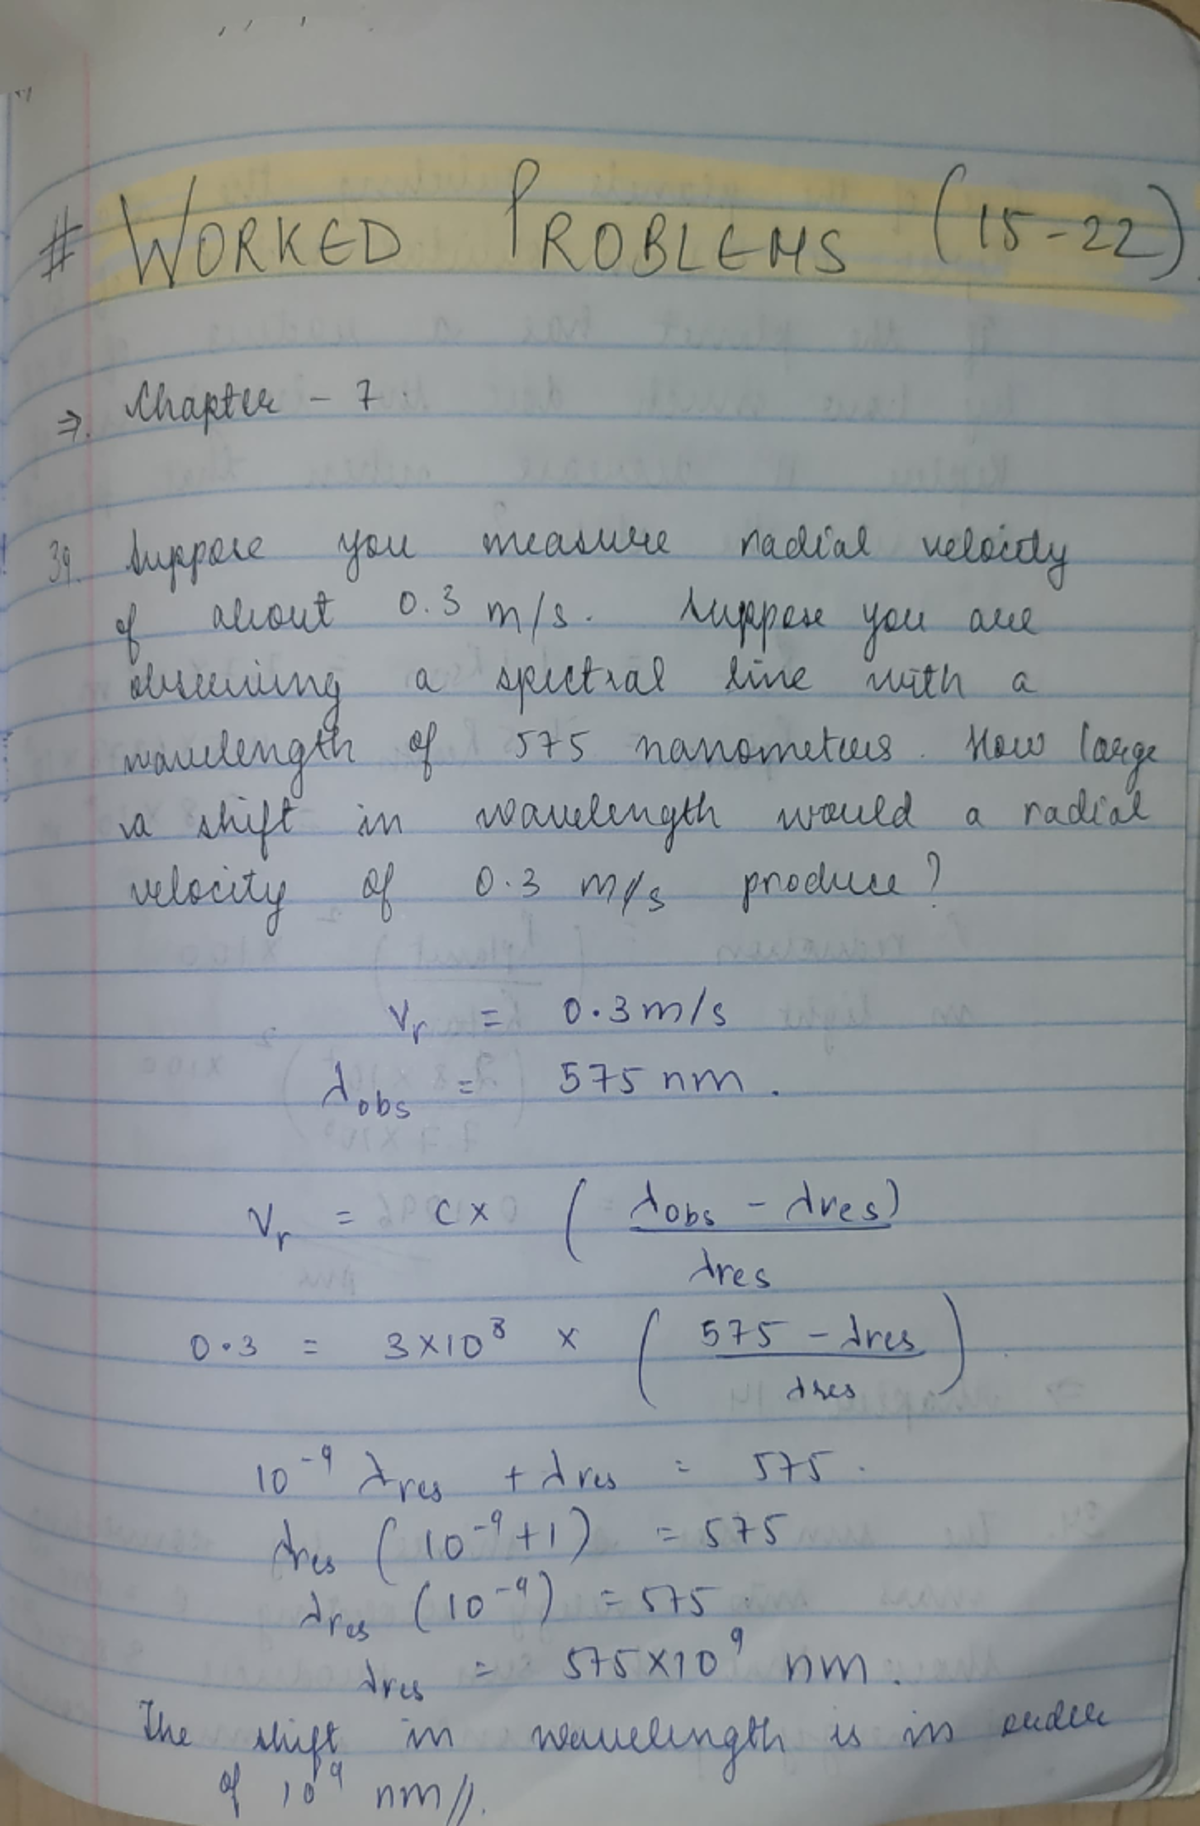 # WORKED PROBLEMS (15-22)
⇒ Chapter - 7
39. Suppose you measure radial velocity
of about 0.3 m/s. Suppose you are
observing a spectral line with a
wavelength of 575 nanometers. How large
a shift in wavelength would a radial
velocity of 0.3 m/s produce?
Vr = 0.3 m/s
λobs = 575 nm.
Vr = C × (λobs - λres)
λres
0.3 = 3×10⁸ × (575 - λres)
λres
10⁻⁹ λres + λres = 575.
λres (10⁻⁹+1) = 575
λres (10⁻⁹) = 575.
λres = 575×10⁹ nm.
The shift in wavelength is in order
of 10⁹ nm//.